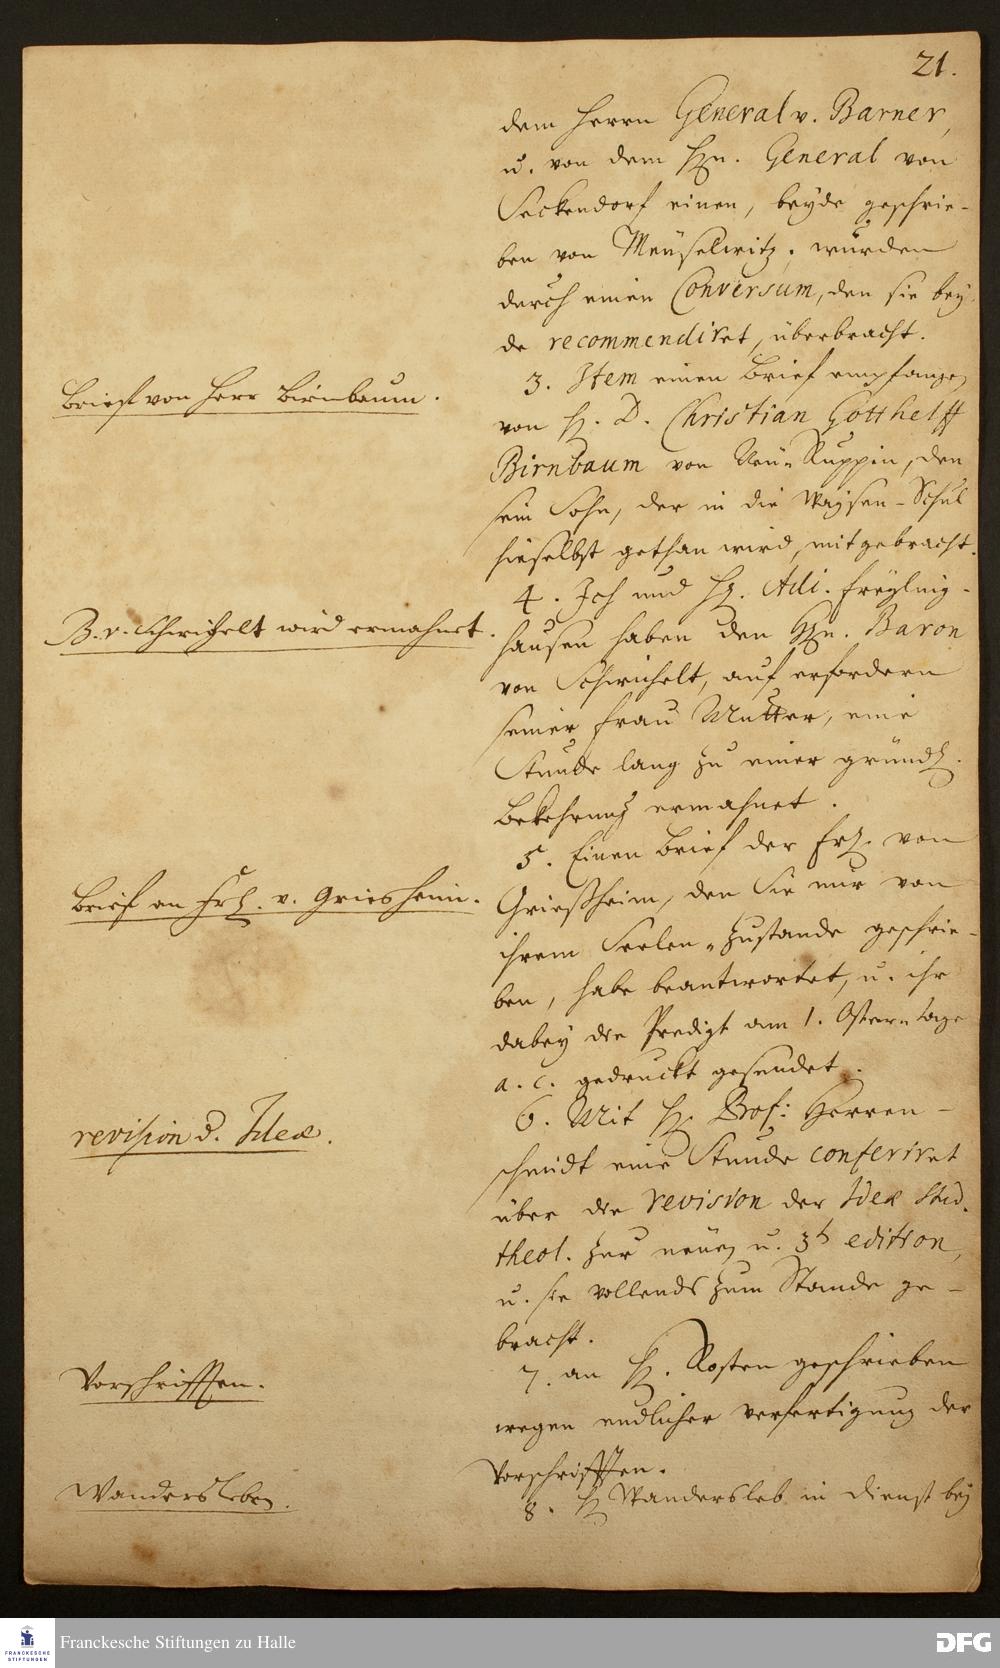 21.
dem Herrn General v. Barner,
u. von dem Hrn. General von
Seckendorf einen, beyde geschrie-
ben von Meüselwitz, wurden
durch einen Conversum, den sie bey-
de recommendiret, überbracht.
Brief von Herr Birnbaum.
3. Item einen Brief empfangen
von H. D. Christian Gotthelff
Birnbaum von Neü-Ruppin, den
sein Sohn, der in die Waysen-Schul
hieselbst gethan wird, mitgebracht.
B. v. Schwichelt wird ermahnet.
4. Ich und H. Adj. Freyling-
hausen haben den Hrn. Baron
von Schwichelt, auf erfordern
seiner Frau Mutter, eine
Stunde lang zu einer gründl.
Bekehrung ermahnet.
Brief an Frl. v. Griesheim.
5. Einen Brief der Frl. von
Grießheim, den Sie mir von
ihrem Seelen-Zustande geschrie-
ben, habe beantwortet, u. ihr
dabey die Predigt am 1. Oster-tage
a. c. gedruckt gesendet.
revision d. Ideæ.
6. Mit H. Prof: Herren-
schmidt eine Stunde conferiret
über die revision der Ideæ Stud.
theol. zur neüen u. 3t edition,
u. sie vollends zum Stande ge-
bracht.
Vorschrifften.
7. an H. Rosten geschrieben
wegen endlicher verfertigung der
Vorschrifften.
Wandersleben.
8. H Wandersleb in dienst bey
FRANCKESCHE
STIFTUNGEN
Franckesche Stiftungen zu Halle
DFG